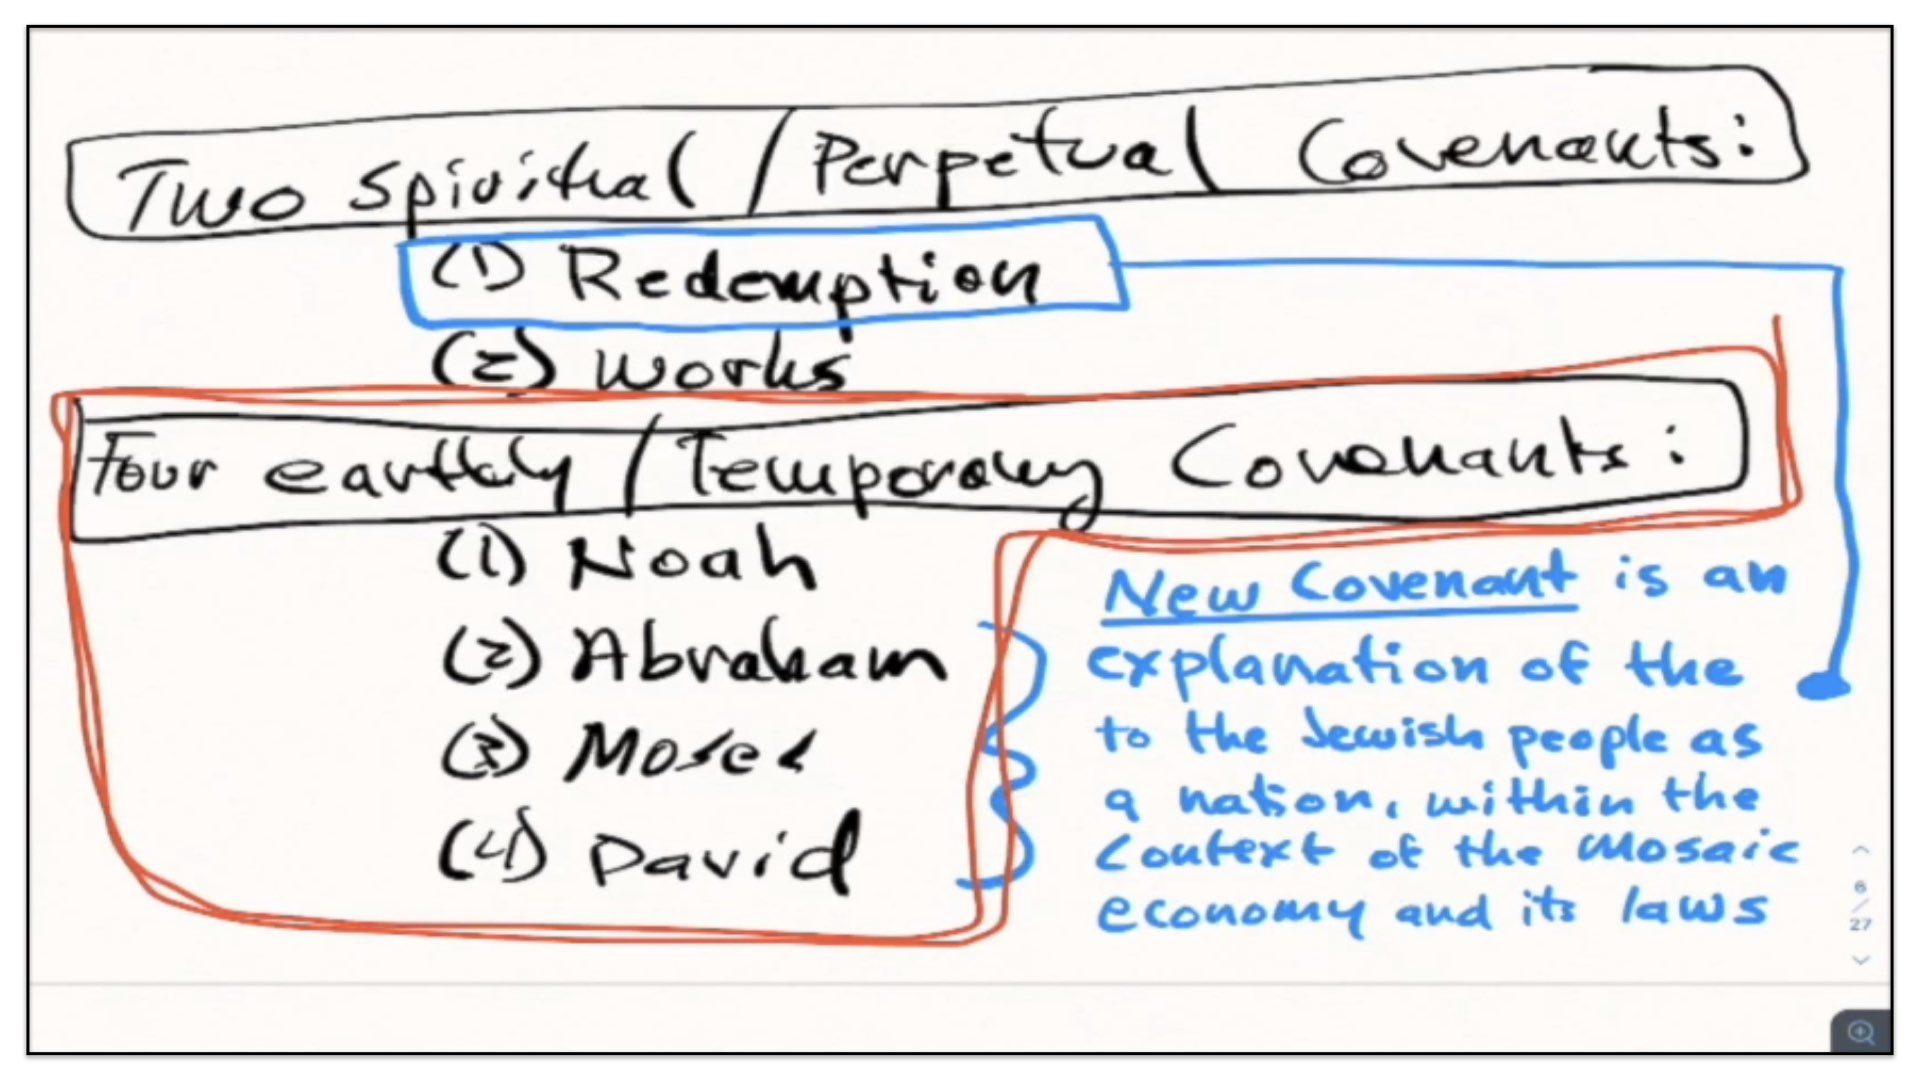 Two Spiritual / Perpetual Covenants:
(1) Redemption
(2) Works
Four earthly / Temporary Covenants:
(1) Noah
(2) Abraham
(3) Moses
(4) David
New Covenant is an
explanation of the
to the Jewish people as
a nation, within the
context of the Mosaic
economy and its laws
6
/
27